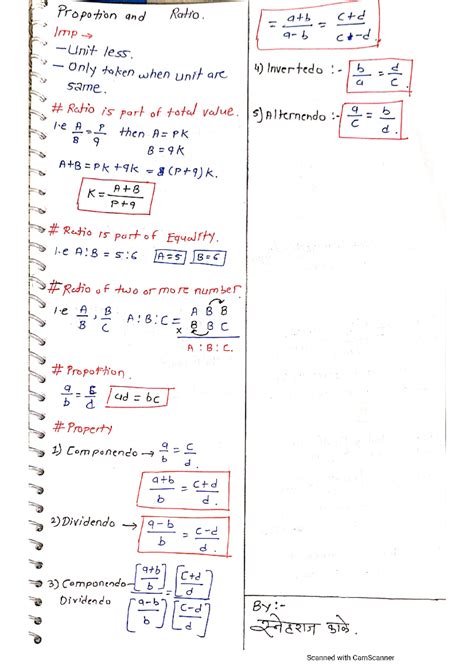 Propotion and Ratio.
Imp →
- Unit less.
- Only taken when unit are
same.
# Ratio is part of total value.
i.e A/B = P/q then A = PK
B = qK
A+B = PK + qK = (P+q) K.
K = A+B / P+q
# Ratio is part of Equality.
i.e A:B = 5:6 A=5 B=6
# Ratio of two or more number
i.e A/B, B/C A:B:C = A B B
× B B C
A : B : C.
# Propottion.
a/b = c/d ad = bc
# Property
1) Componendo → a/b = c/d.
a+b / b = c+d / d.
2) Dividendo → a-b / b = c-d / d.
3) Componendo- [a+b / b] = [c+d / d]
Dividendo [a-b / b] [c-d / d]
= a+b / a-b = c+d / c-d.
4) Invertedo :- b/a = d/c.
5) Alternendo :- a/c = b/d.
By :-
स्नेहराज काळे.
Scanned with CamScanner